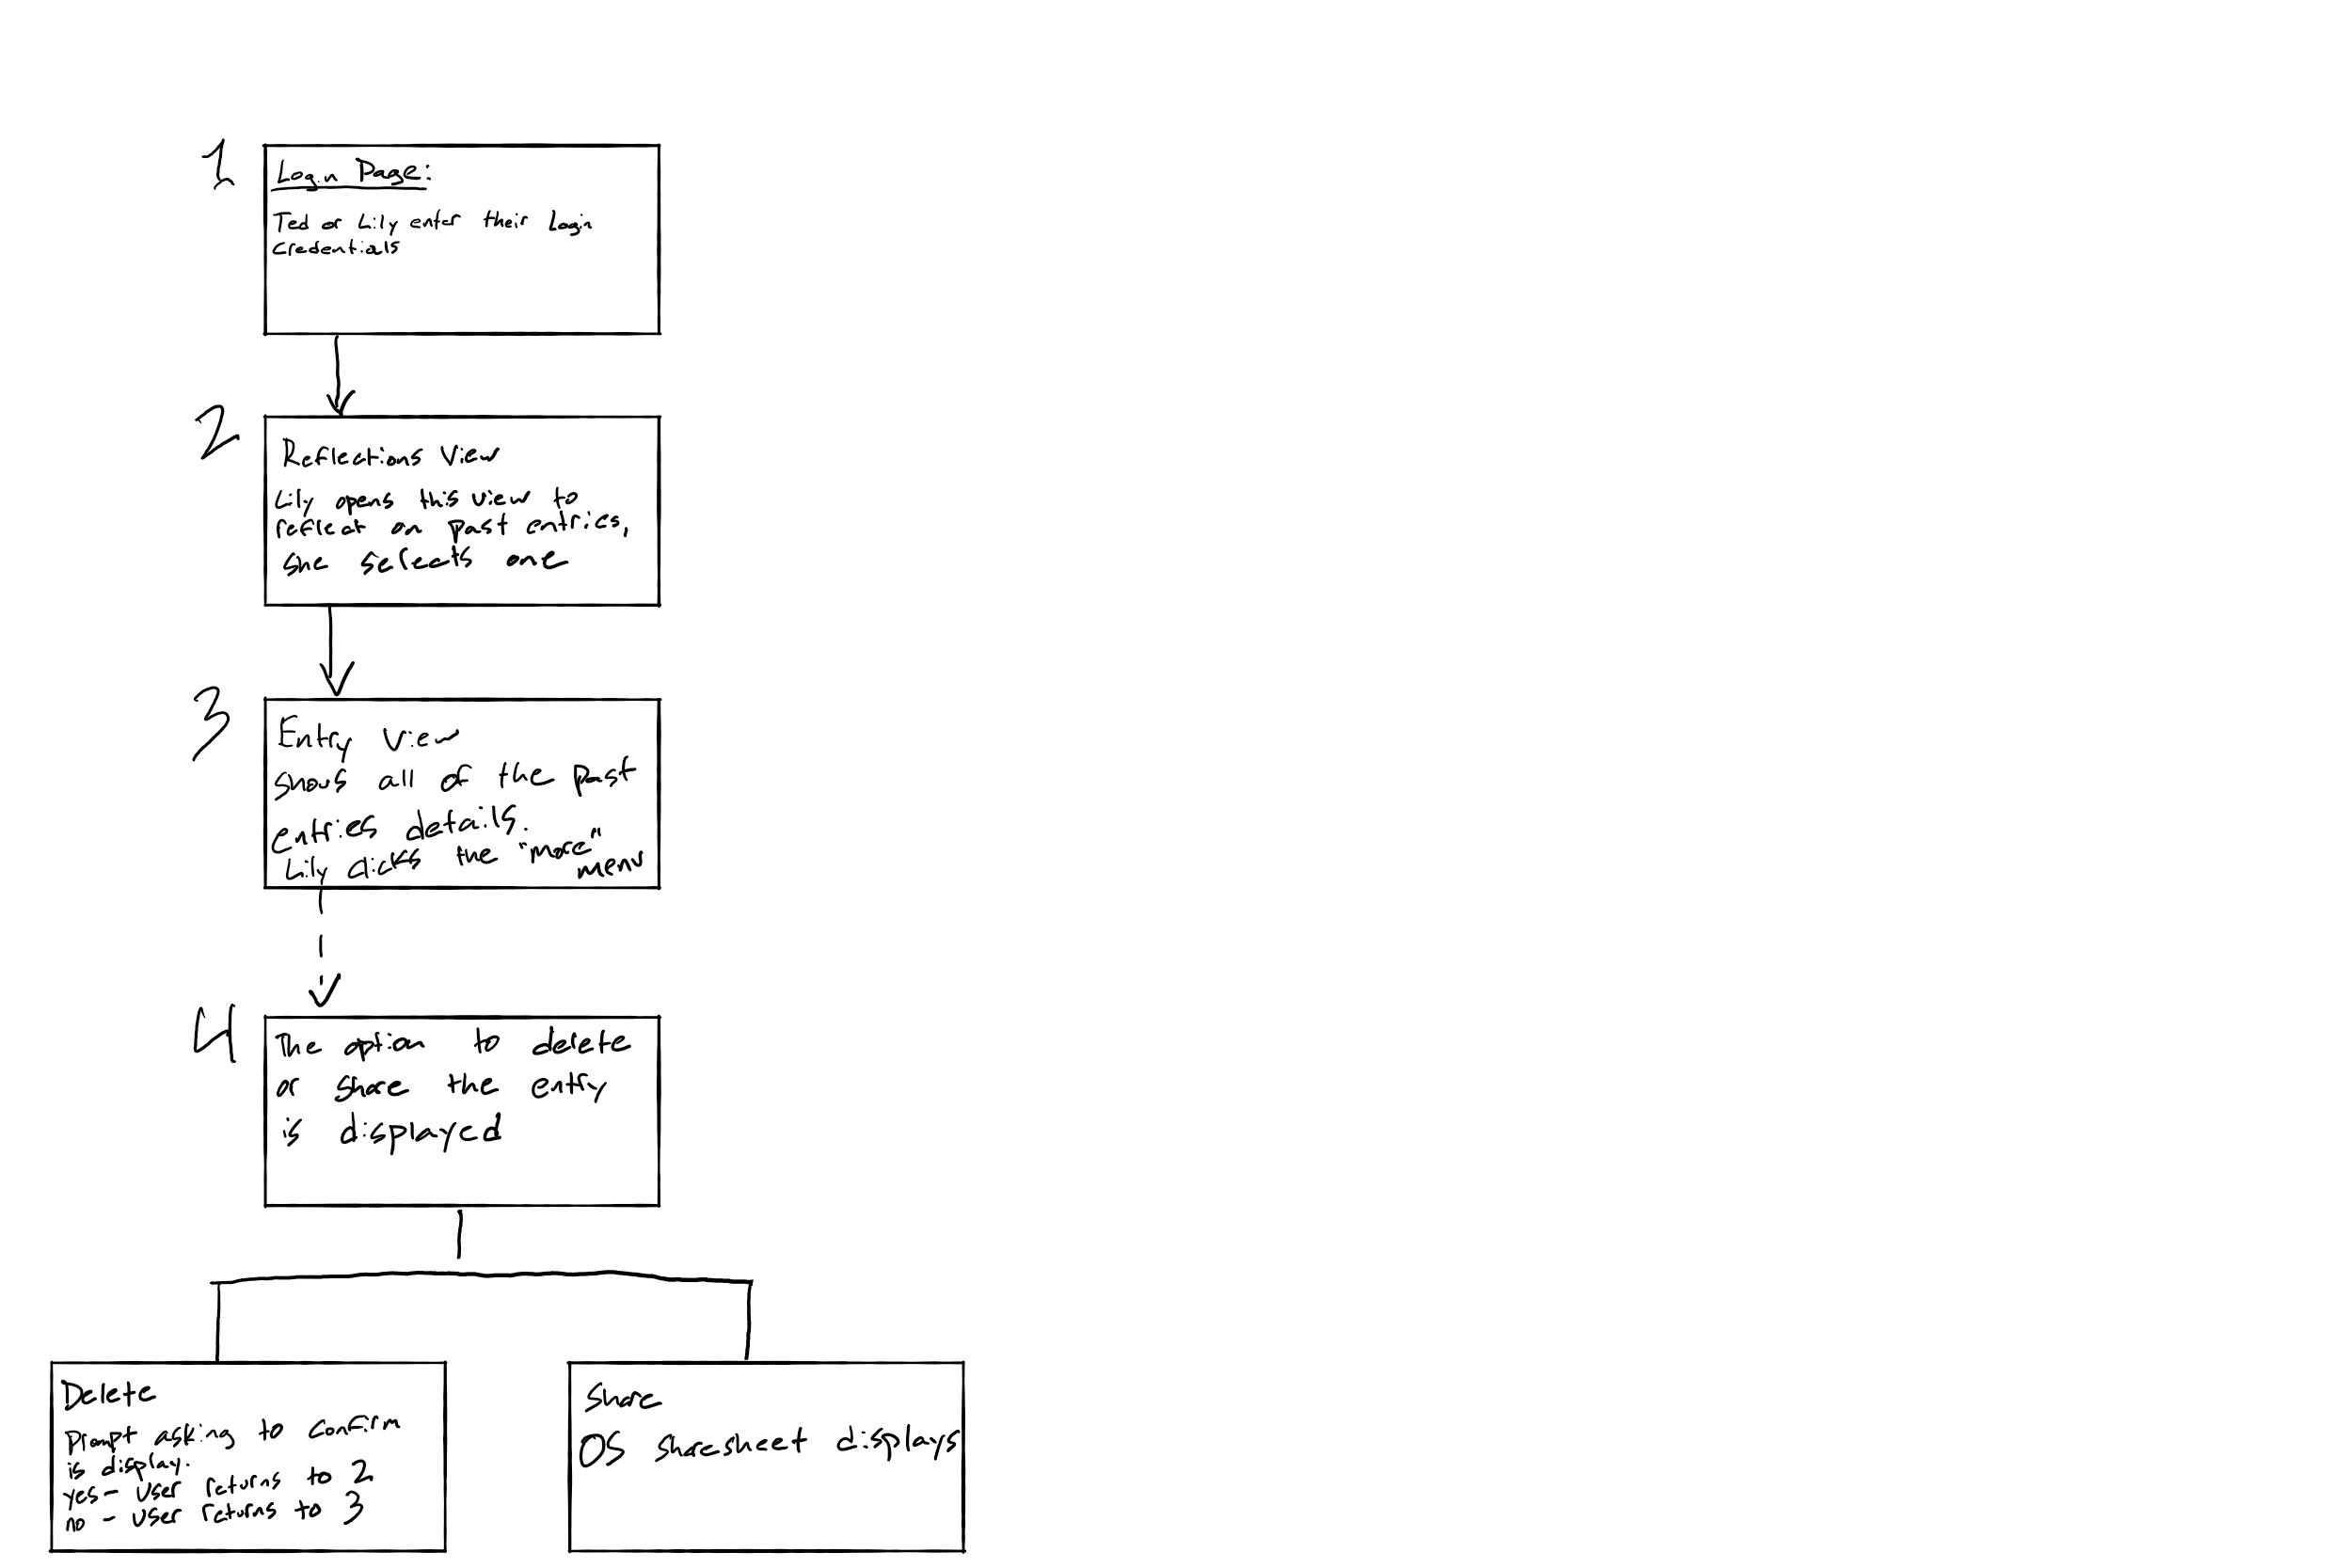 1
Login Page:
Ted or Lily enter their Login
Credentials
2
Reflections View
Lily opens this view to
reflect on past entries,
she selects one
3
Entry View
shows all of the past
entries details.
Lily clicks the "more"
menu
4
The option to delete
or share the entry
is displayed
Delete
Prompt asking to confirm
is display.
yes - User returns to 2
no - User returns to 3
Share
OS sharesheet displays